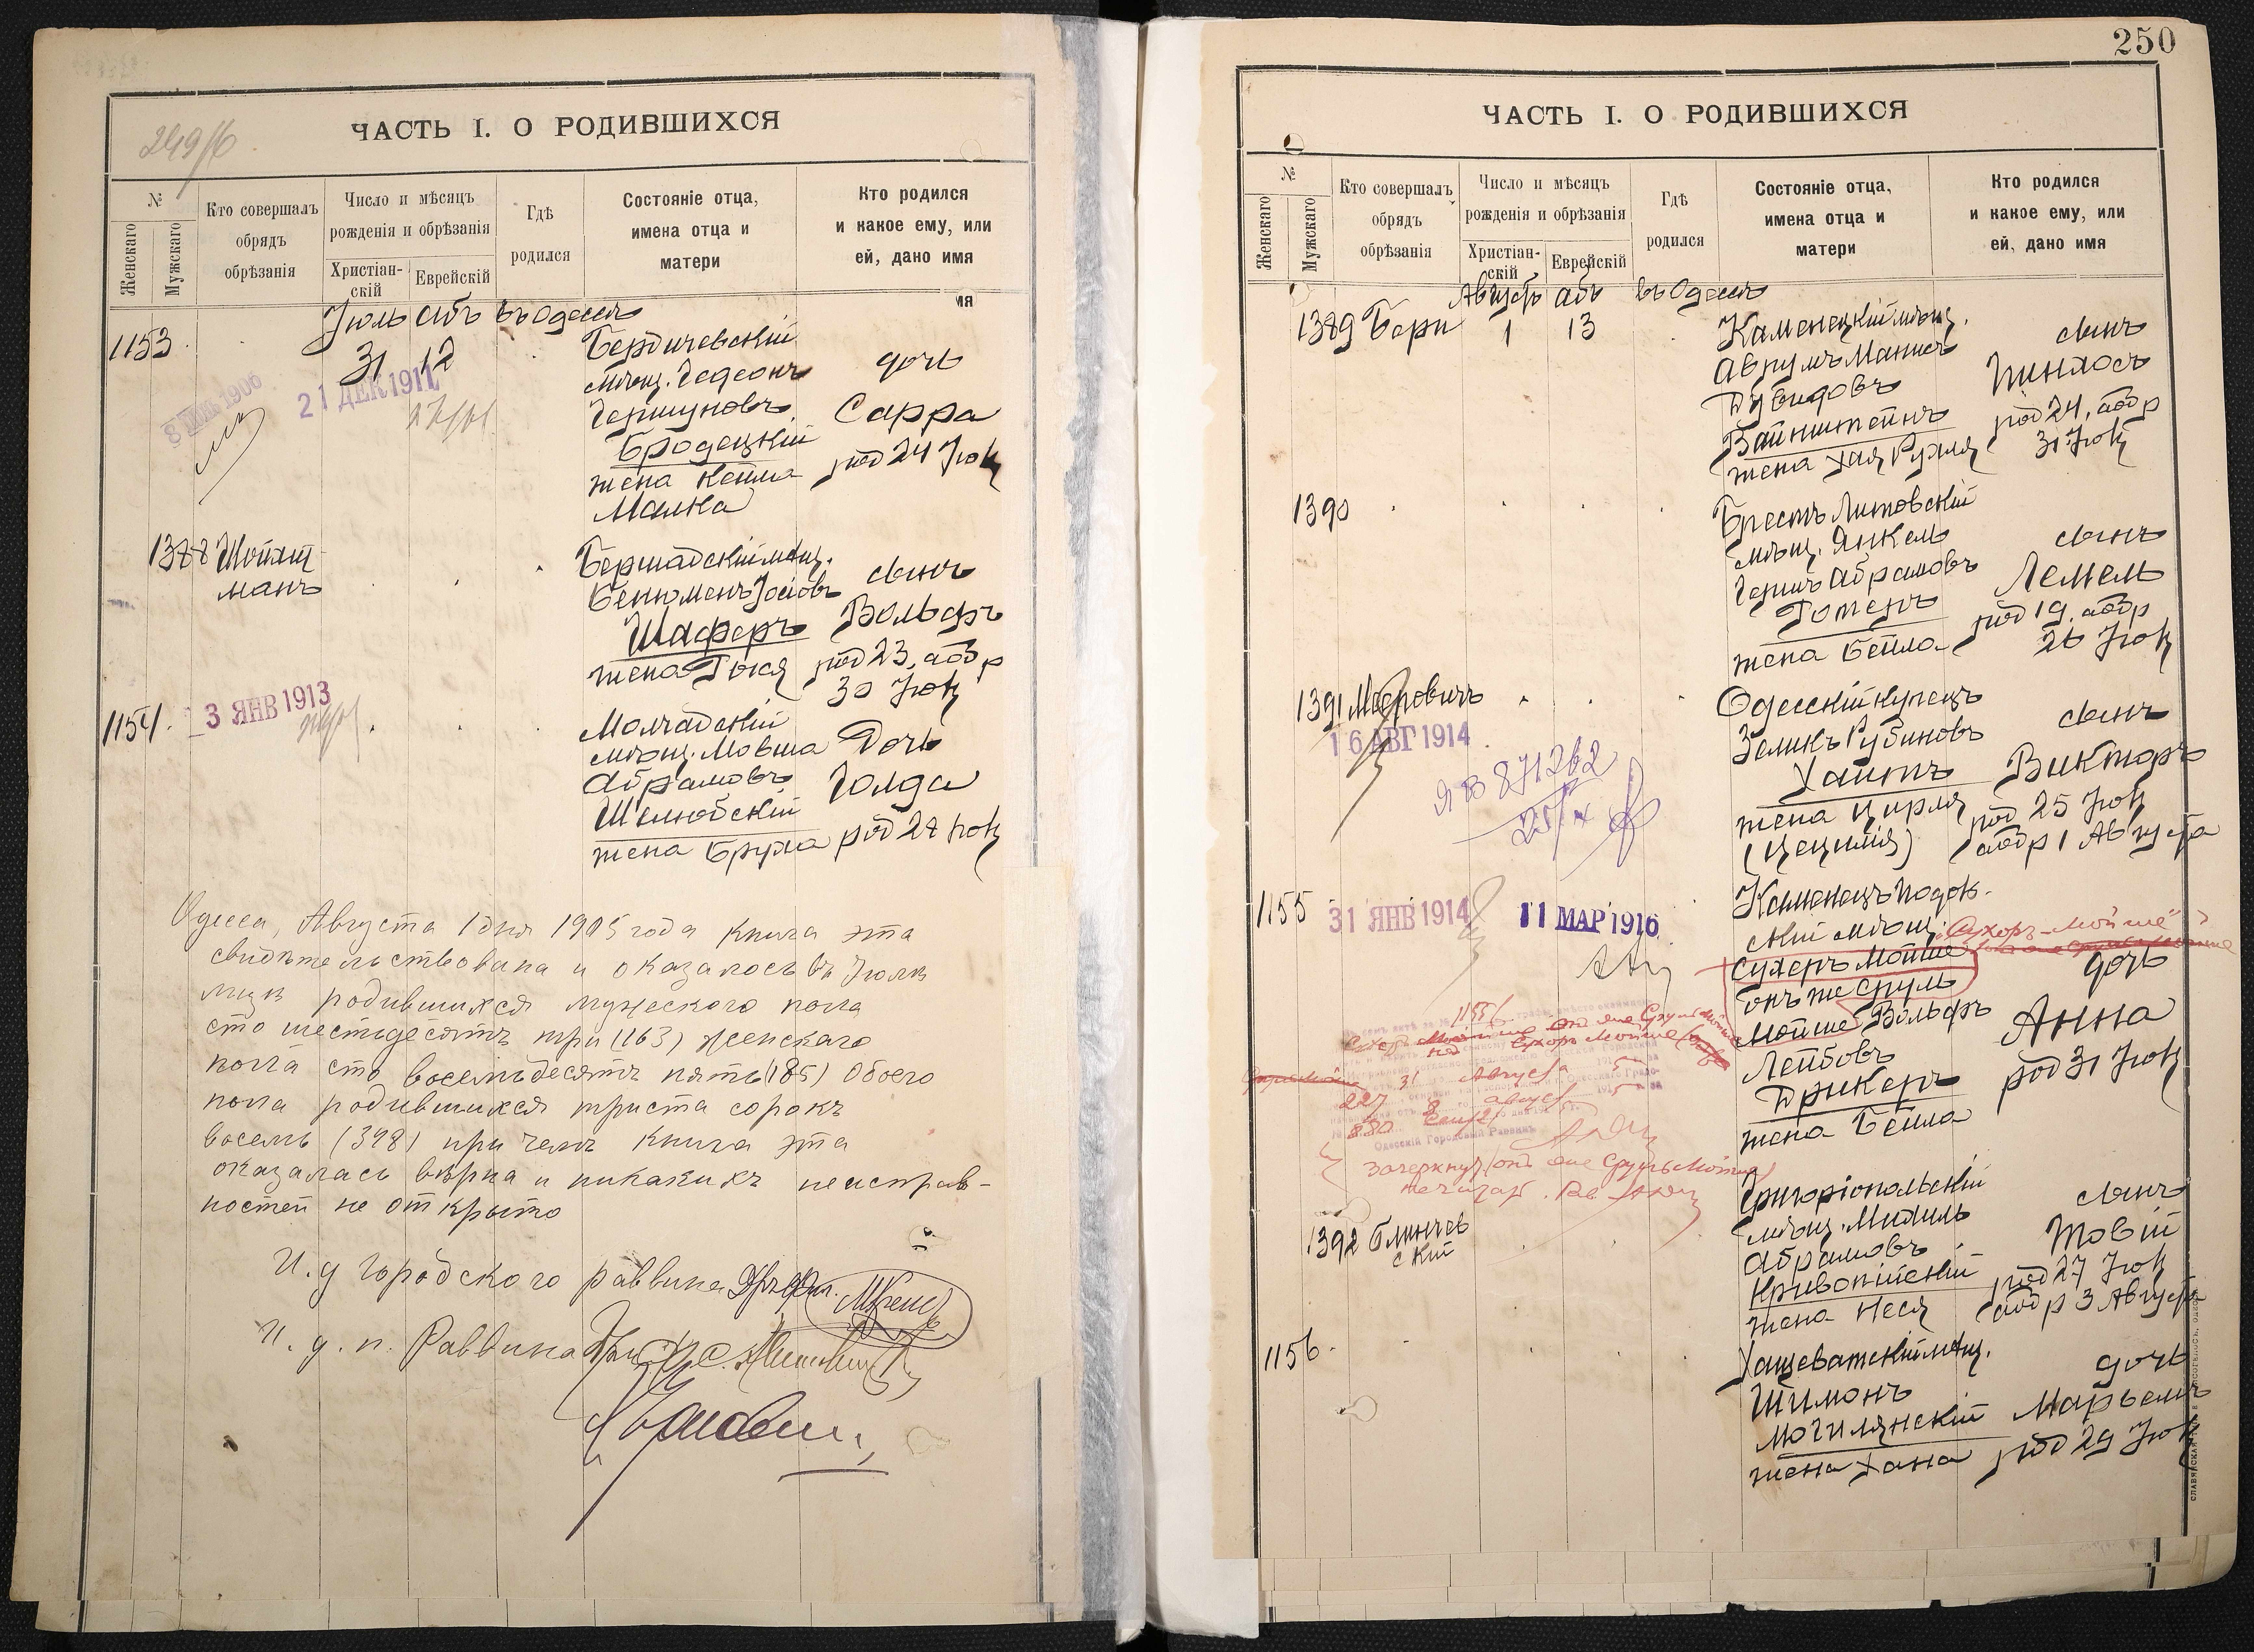 249/б
ЧАСТЬ I. О РОДИВШИХСЯ
№
Женскаго
Мужскаго
Кто совершалъ
обрядъ
обрѣзанія
Число и мѣсяцъ
рожденія и обрѣзанія
Христіан-
скій
Еврейскій
Гдѣ
родился
Состояніе отца,
имена отца и
матери
Кто родился
и какое ему, или
ей, дано имя
Іюль Абъ въ Одессѣ
1153
31 12
Бердичевскій
мѣщ. Гедеонъ
Гершуновъ
Бродецкій
жена Кейла
Малка
дочь
Сарра
род 24 Іюл
21 ДЕК 1911
1388 Шойхт
манъ
Бершадскій мѣщ.
Бенюменъ Іосіовъ
Шаферъ
жена Гися
сынъ
Вольфъ
род 23, аобр
30 Іюл
1154.
3 ЯНВ 1913
Молчадскій
мѣщ. Мовша
Абрамовъ
жена Бруха
Дочь
Голда
род 28 Іюл
Одесса, Августа 1 дня 1905 года книга эта
свидѣтельствована и оказалось въ Іюлѣ
мцѣ родившихся мужескаго пола
сто шестьдесятъ три (163) женскаго
пола сто восемьдесятъ пять (185) обоего
пола родившихся триста сорокъ
восемь (348) при чемъ книга эта
оказалась вѣрна и никакихъ неисправ-
ностей не открыто
И. д Городского раввина
И. д. п. Раввина
250
ЧАСТЬ I. О РОДИВШИХСЯ
№
Женскаго
Мужскаго
Кто совершалъ
обрядъ
обрѣзанія
Число и мѣсяцъ
рожденія и обрѣзанія
Христіан-
скій
Еврейскій
Гдѣ
родился
Состояніе отца,
имена отца и
матери
Кто родился
и какое ему, или
ей, дано имя
Августъ Абъ въ Одессѣ
1389 Бери 1 13
Каменецкій мѣщ.
Аврумъ Манисъ
Дувидовъ
Вайнштейнъ
жена Хая Рухля
сынъ
Пинхосъ
род 24, аобр
31 Іюл
1390
Брестъ Литовскій
мѣщ. Янкель
Гершъ Абрамовъ
жена Бейла
сынъ
Лемель
род 19, аобр
26 Іюл
1391 Мееровичъ
16 АВГ 1914
871262
Одесскій купецъ
Зеликъ Рубиновъ
Хаитъ
жена Цирля
(Цецилія)
сынъ
Викторъ
род 25 Іюл
аобр 1 Августа
1155
31 ЯНВ 1914
11 МАР 1916
Каменецъ Подол-
скій мѣщ.
Сухеръ Мойше
онъ же Сруль
Мойше Вольфъ
Лейбовъ
Дрикеръ
жена Бейла
Сухоръ-Мойше
дочь
Анна
род 31 Іюл
1155
31 Августа 5
227
8
Одесскій Городовой Раввинъ
зачеркнут (онъ же Сруль Мойше)
не читат.
1392 Блинчев
скій
Григоріопольскій
мѣщ. Михиль
Абрамовъ
жена Неся
сынъ
Товій
род 27 Іюл
аобр 3 Августа
1156.
Хащеватскій мѣщ.
Шимонъ
Могилянскій
жена Хана
дочь
Марьемъ
род 29 Іюл